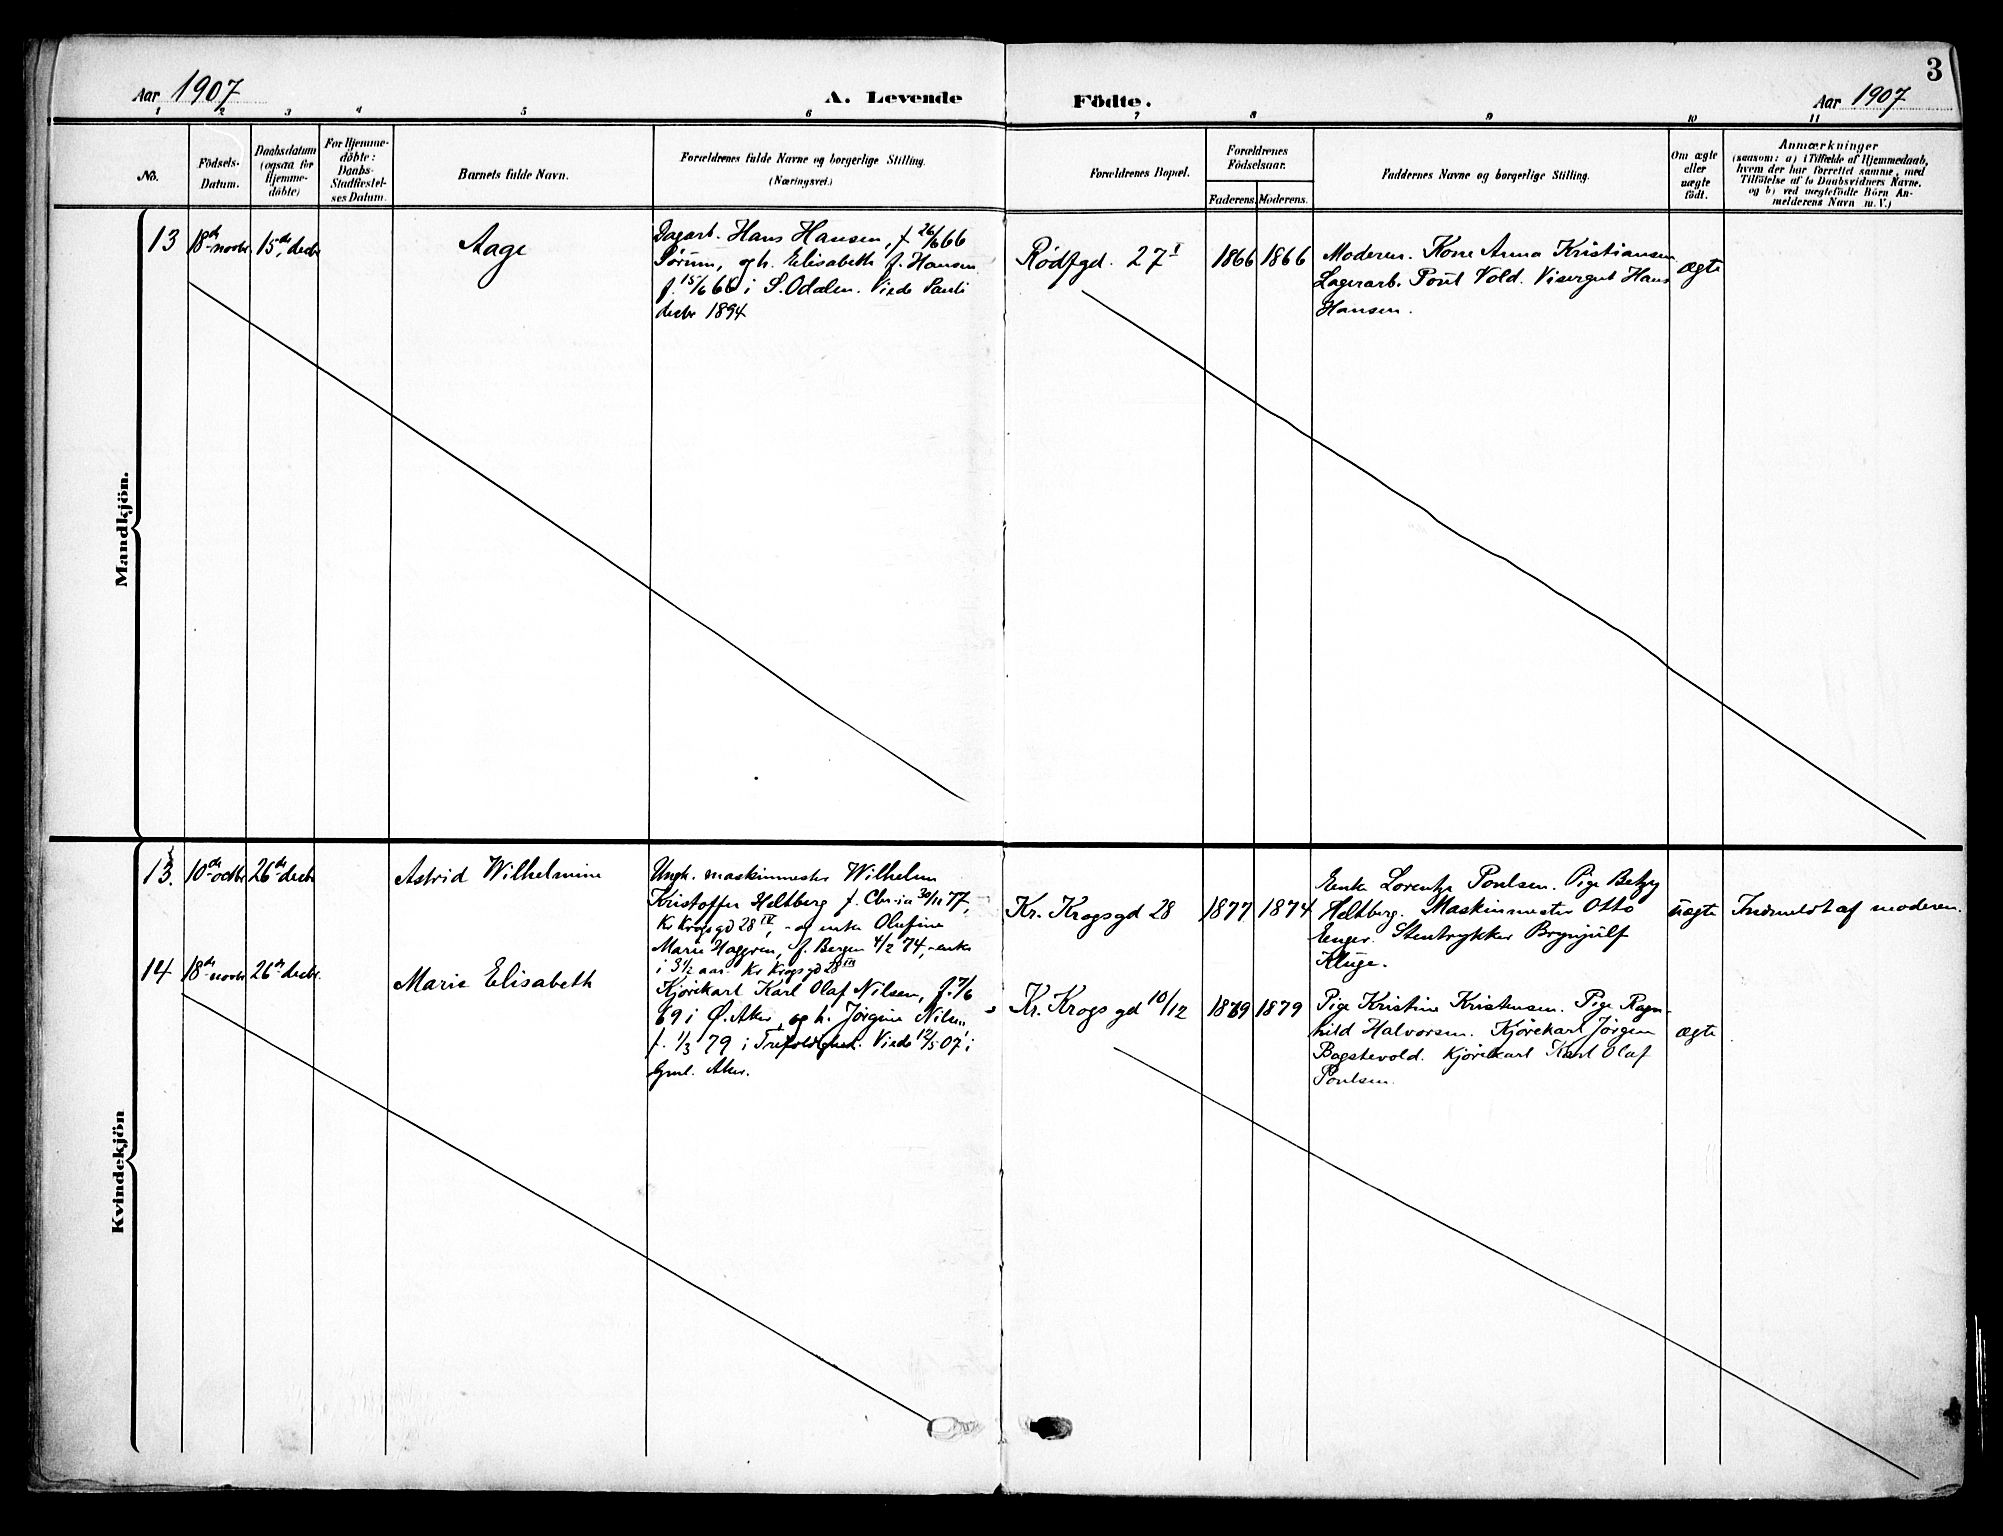 3
Aar 1907
A. Levende Födte.
Aar 1907
1 2 3 4 5 6 7 8 9 10 11
No.
Födsels-
Datum.
Daabsdatum
(ogsaa for
Hjemme-
döbte)
For Hjemme-
döbte:
Daabs-
Stadfæstel-
ses Datum.
Barnets fulde Navn.
Forældrenes fulde Navne og borgerlige Stilling.
(Næringsvei.)
Forældrenes Bopæl.
Forældrenes
Födselsaar.
Faderens. Moderens.
Faddernes Navne og borgerlige Stilling.
Om ægte
eller
uægte
födt.
Anmærkninger
(saasom: a) i Tilfælde af Hjemmedaab,
hvem der har forrettet samme, med
Tilföielse af to Daabsvidners Navne,
og b) ved uægtefödte Börn An-
melderens Navn m. V.)
Mandkjön.
13
18de novbr
15de decbr
Aage
Dagarb. Hans Hansen, f. 26/6 66
Sørum, og h. Elisabeth f. Hansen
f. 15/6 66 i S. Odalen. Viede Pauli
decbr 1894
Rødfgd. 27 I
1866
1866
Moderen. Kone Anna Kristiansen
Lagerarb. Poul Vold. Visergut Hans
Hansen.
ægte
Kvindekjön
13.
10de octbr
26de decbr
Astrid Wilhelmine
Ungk. maskinmester Wilhelm
Kristoffer Heltberg f. Chr-ia 30/11 77,
Kr Krogsgd 28 IV, og enke Olefine
Marie Haggren, f. Bergen 4/2 74, enke
i 3 1/2 aar Kr Krogsgd 28 III
Kr. Krogsgd 28
1877
1874
Enke Lorentze Poulsen. Pige Betzy
Heltberg. Maskinmester Otto
Enger. Stentrykker Brynjulf
Kluge.
uægte
Indmeldt af moderen.
14
18de novbr
26de decbr.
Marie Elisabeth
Kjørekarl Karl Olaf Nilsen, f. 7/6
69 i Ø. Aker, og h. Jørgine Nilsen,
f. 1/3 79 i Trefoldighed. Viede 12/5 07 i
Gml. Aker.
Kr. Krogsgd 10/12
1869
1879
Pige Kristine Kristensen. Pige Ragn-
hild Halvorsen. Kjørekarl Jørgen
Bogstevold. Kjørekarl Karl Olaf
Poulsen.
ægte